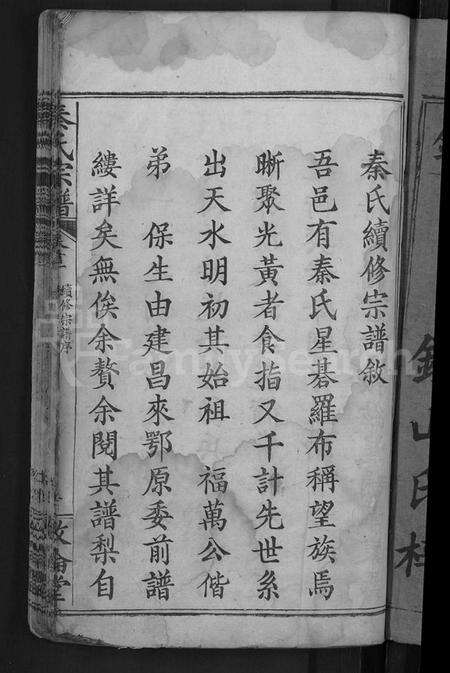 秦氏續修宗譜敘
吾邑有秦氏星碁羅布稱望族焉
晰聚光黃者食指又千計先世系
出天水明初其始祖　福萬公偕
弟　保生由建昌來鄂原委前譜
縷詳矣無俟余贅余閱其譜梨自
秦氏宗譜
續修宗譜序
敦倫堂
FamilySearch